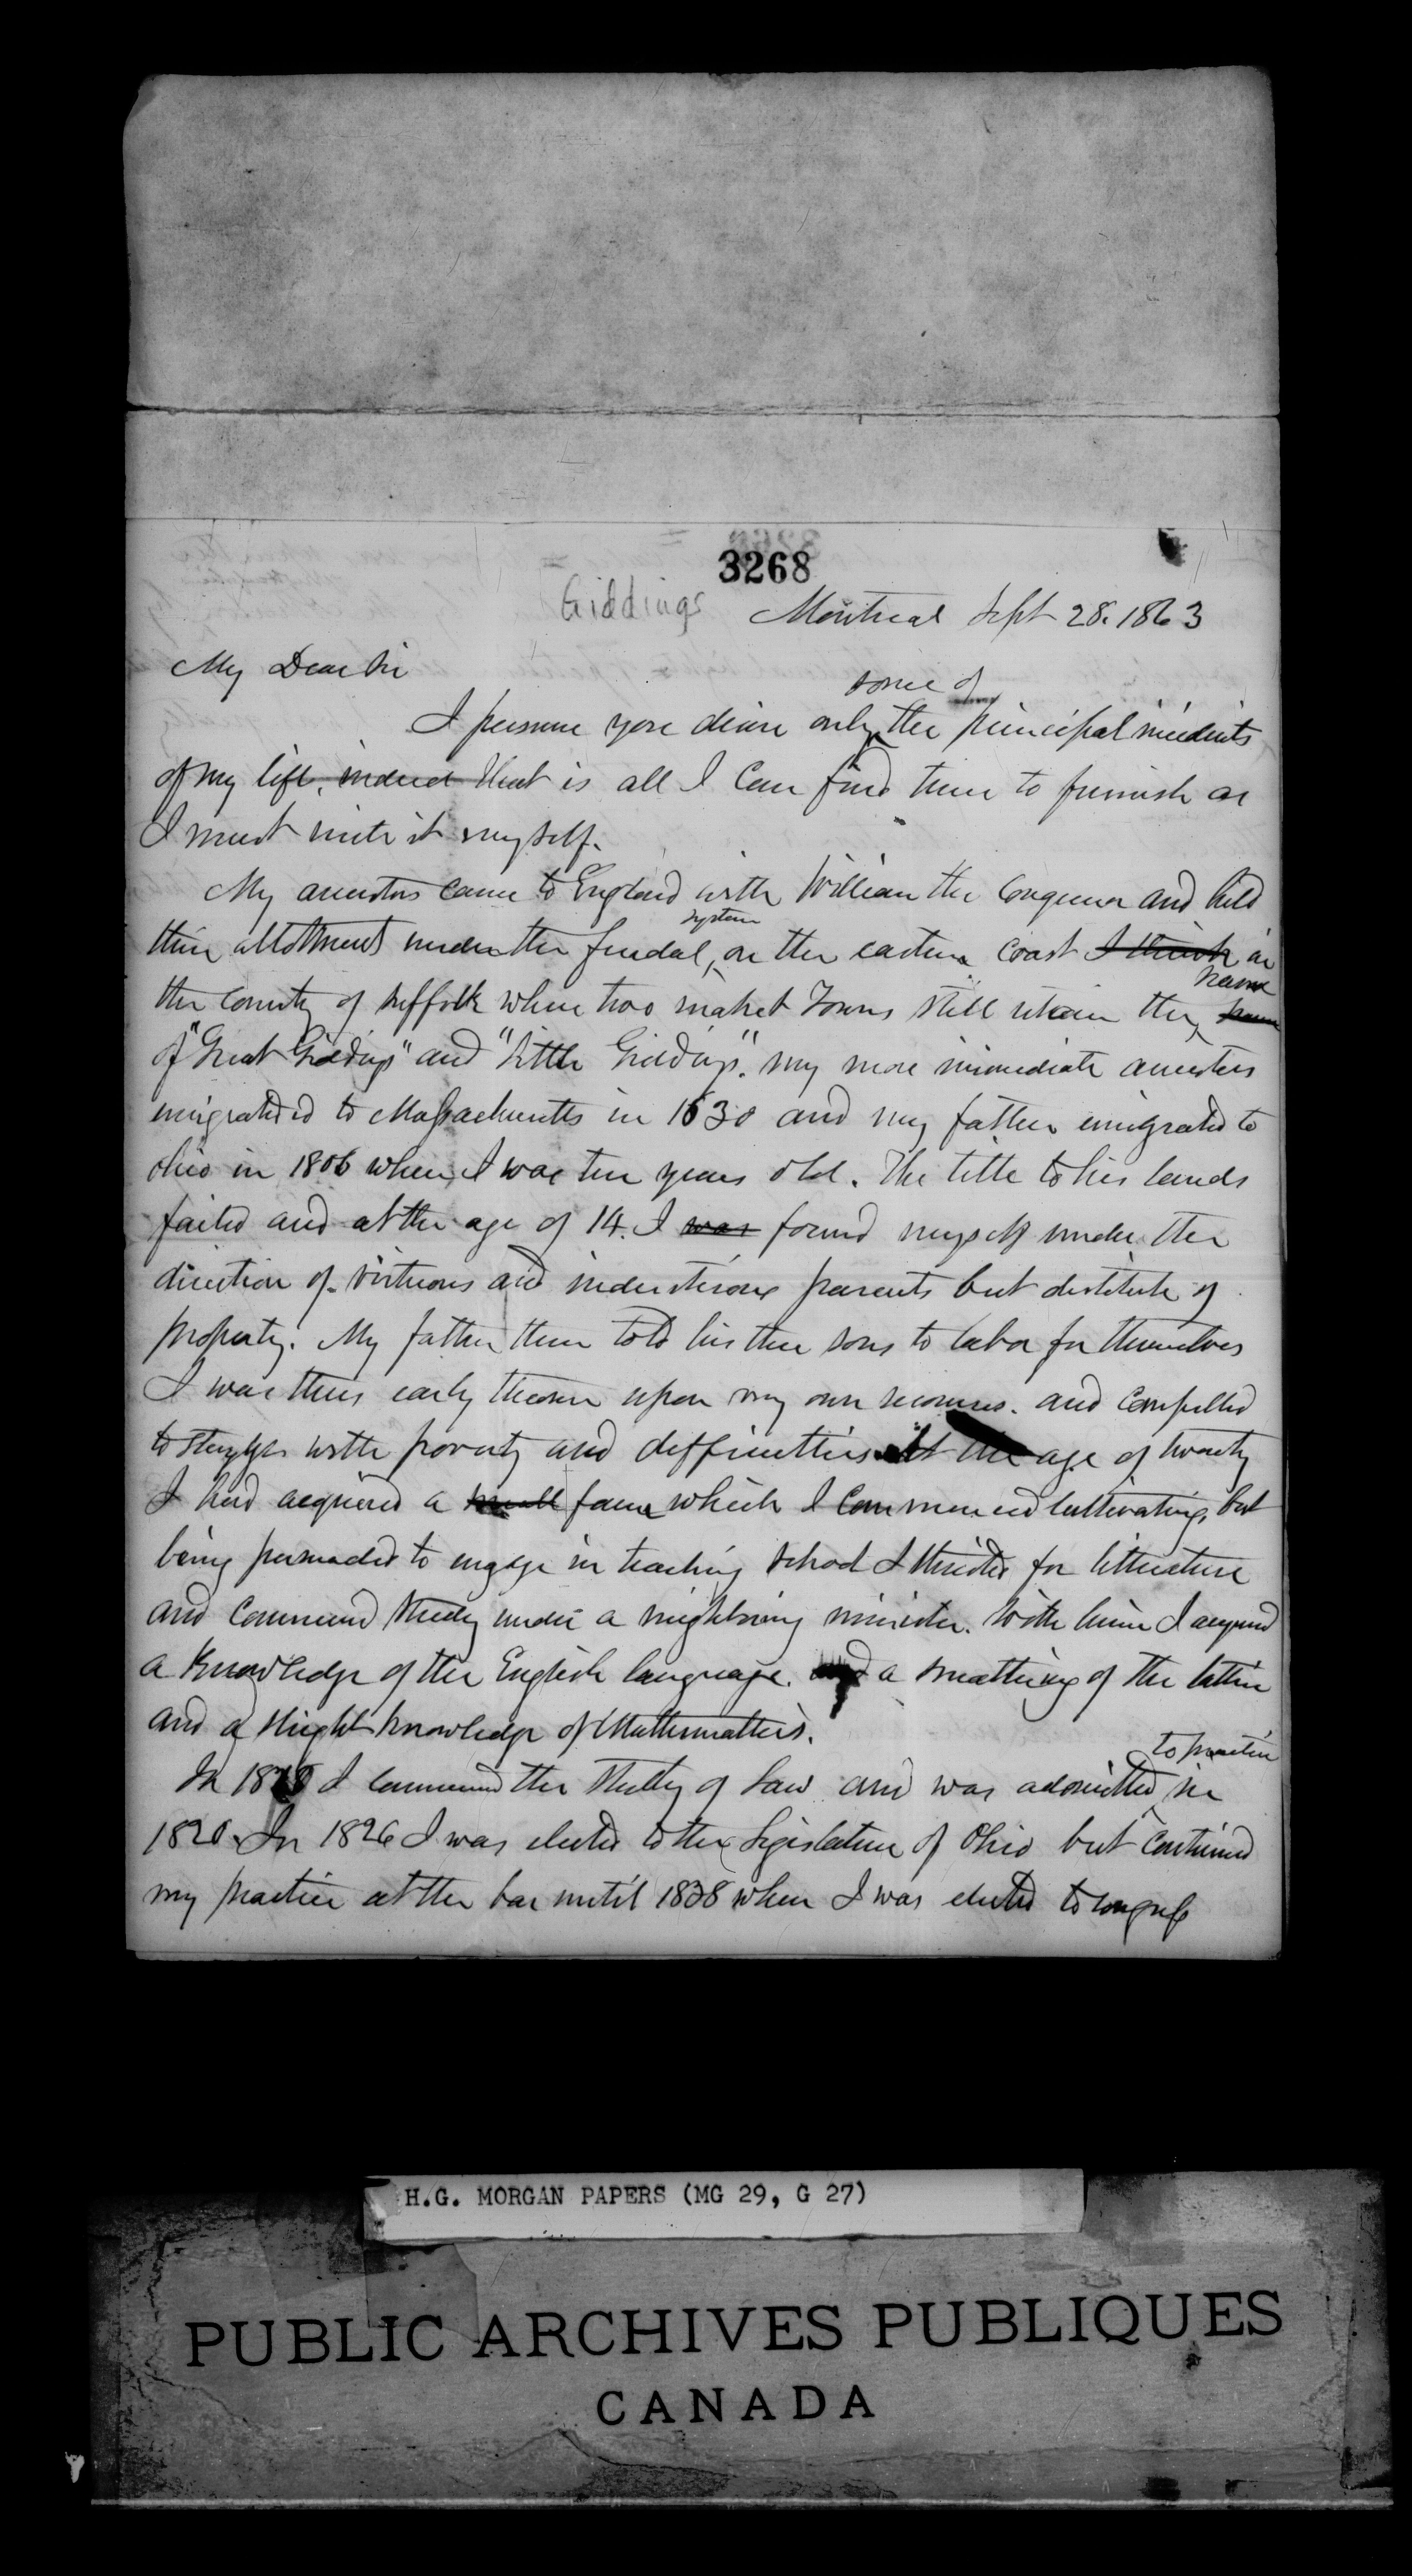 3268
Giddings Montreal Sept 28. 1863
My Dear Sir
some of
I presume you desire only the principal incidents
of my life, indeed that is all I can find time to furnish as
I must write it myself.
My ancestors came to England with William the Conqueror and held
system
their allotments under the feudal, on the eastern coast I think in
name
the County of Suffolk where two market Towns still retain the name
of "Great Giddings" and "Little Giddings". my more immediate ancestors
emigrated to Massachusetts in 1630 and my father emigrated to
Ohio in 1806 when I was ten years old. The title to his lands
failed and at the age of 14. I was found myself under the
direction of virtuous and industrious parents but destitute of
property. My father then told his three sons to labor for themselves
I was thus early thrown upon my own resources. and compelled
to struggle with poverty and difficulties At the age of twenty
I had acquired a small farm which I commenced cultivating, but
being persuaded to engage in teaching school I thirsted for litterature
and commenced study under a neighboring minister. With him I acquired
a knowledge of the English language. and a smattering of the lattin
and a slight knowledge of Mathematics.
to practice
In 1818 I commenced the study of Law and was admitted in
1820. In 1826 I was elected to the Legislature of Ohio but continued
my practice at the bar until 1838 when I was elected to congress
H.G. MORGAN PAPERS (MG 29, G 27)
PUBLIC ARCHIVES PUBLIQUES
CANADA